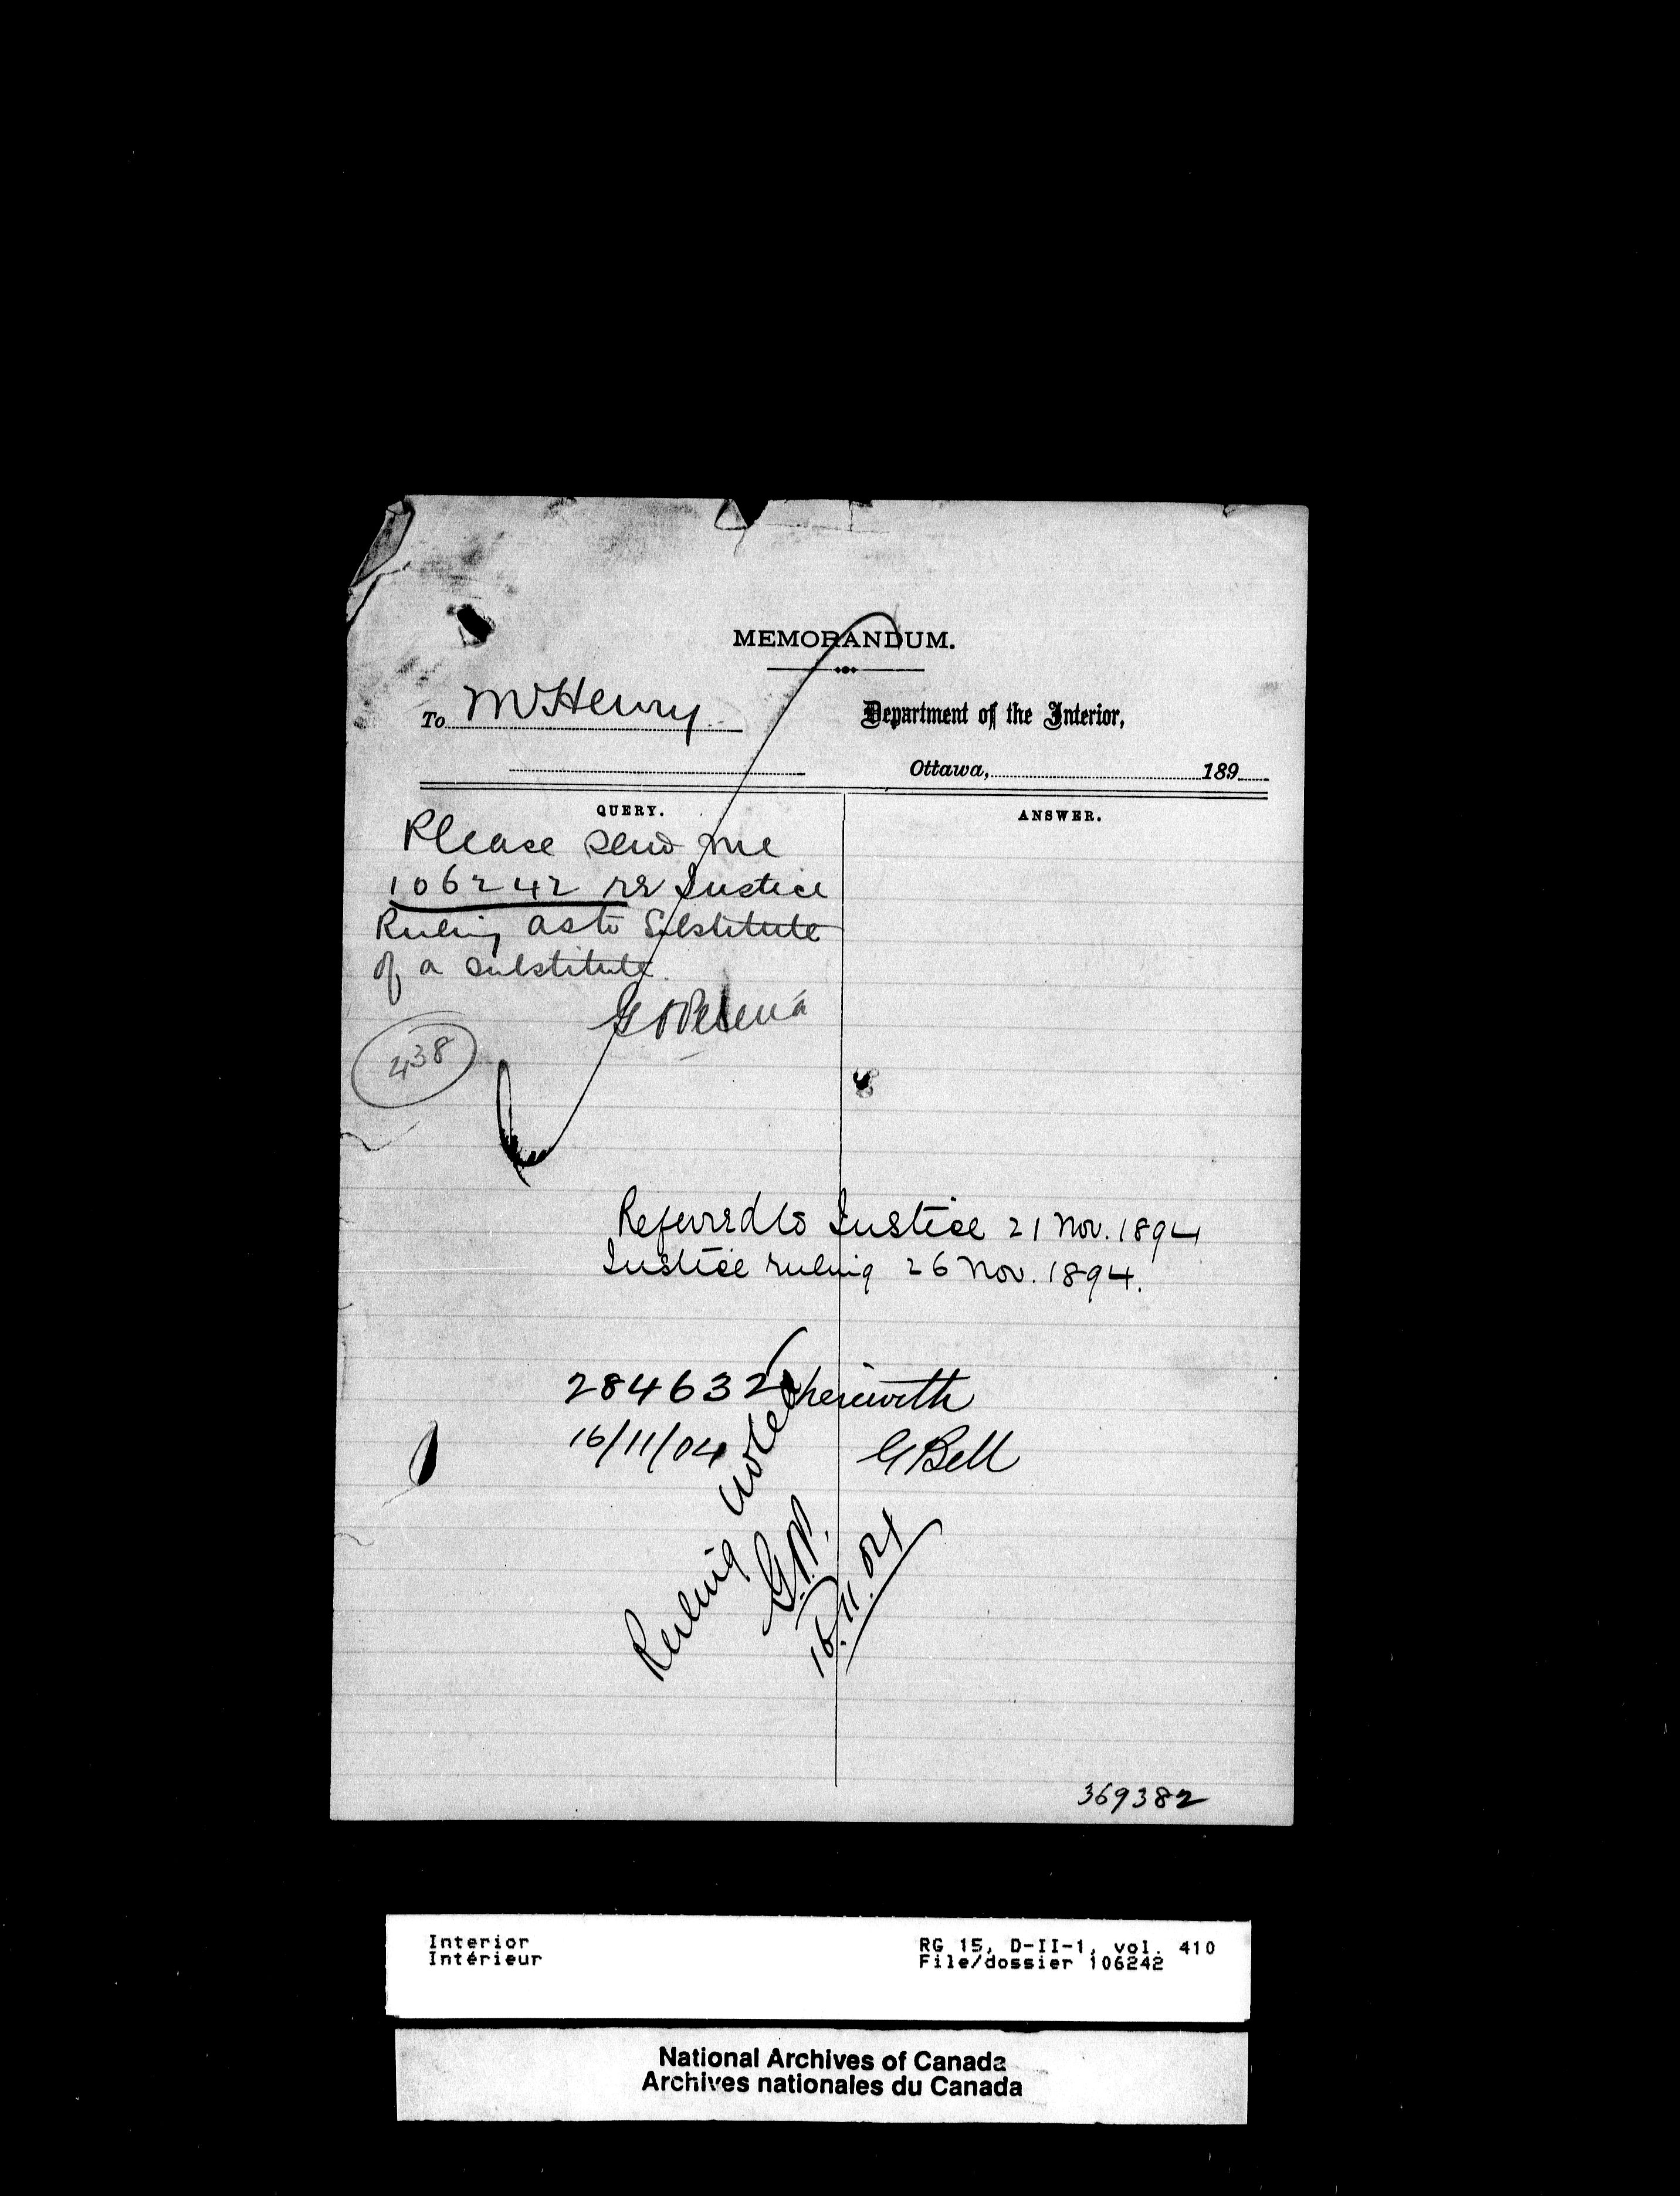 MEMORANDUM.
To Mr Henry
Department of the Interior,
Ottawa, 189
QUERY.
ANSWER.
Please send me
106242 re Justice
Ruling as to Substitute
of a substitute.
438
Referred to Justice 21 Nov. 1894
Justice ruling 26 Nov. 1894.
284632 herewith
16/11/04
G Bell
Ruling noted
G.P.
16.11.04
369382
Interior
Intérieur
RG 15, D-II-1, vol. 410
File/dossier 106242
National Archives of Canada
Archives nationales du Canada